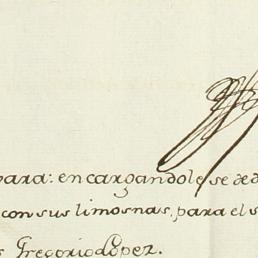 para: encargandole se ded
con sus limosnas, para el s
Gregorio Lopez.